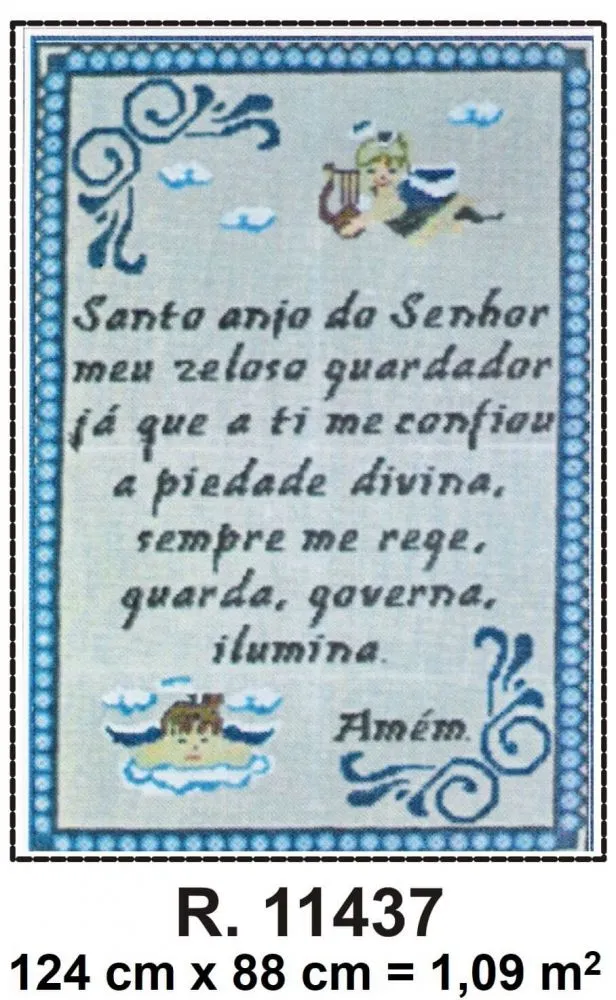 Santo anjo do Senhor
meu zeloso guardador
já que a ti me confiou
a piedade divina,
sempre me rege,
guarda, governa,
ilumina.
Amém.
R. 11437
124 cm x 88 cm = 1,09 m²